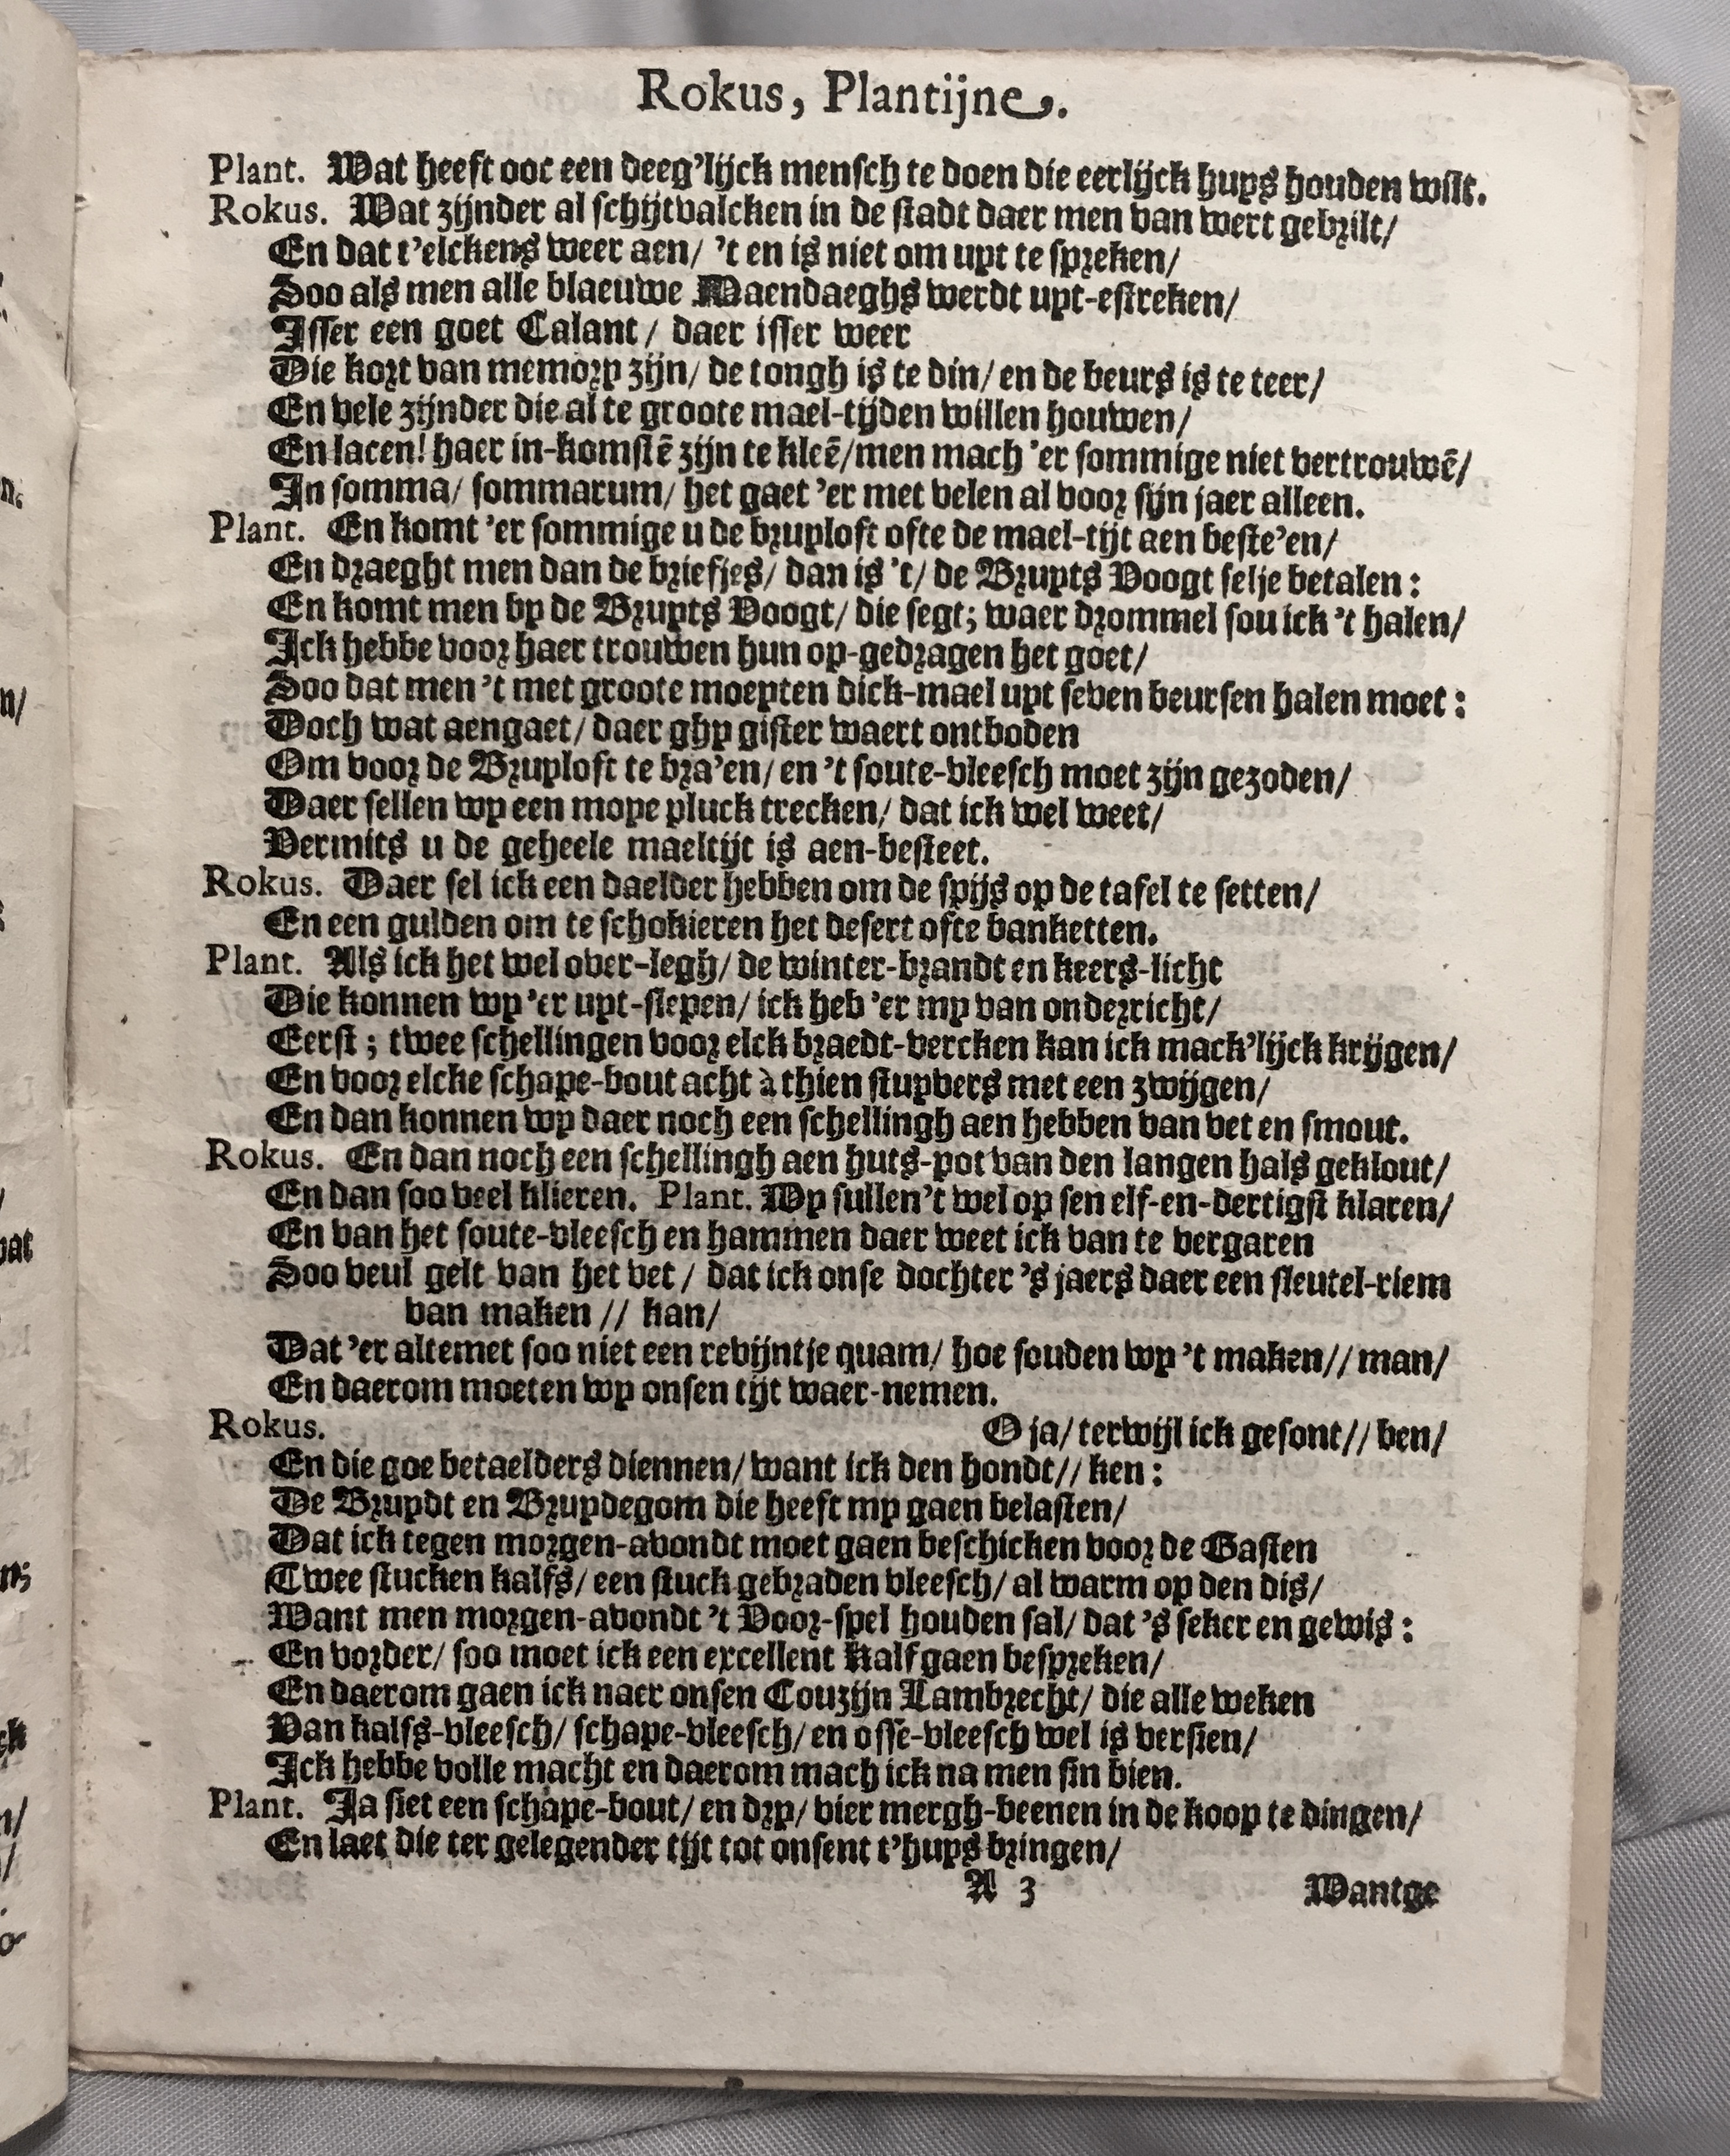 Rokus, Plantijne.
Plant. Wat heeft ooc een deeg'lijck mensch te doen die eerlijck huys houden wilt.
Rokus. Wat zijnder al schijtvalcken in de stadt daer men van wert gebrilt/
En dat t'elckens weer aen/ 't en is niet om uyt te spreken/
Soo als men alle blaeuwe Maendaeghs werdt uyt-estreken/
Isser een goet Calant/ daer isser weer
Die kort van memory zijn/ de tongh is te din/ en de beurs is te teer/
En vele zijnder die al te groote mael-tijden willen houwen/
En lacen! haer in-komstē zijn te kleē/men mach 'er sommige niet vertrouwē/
In somma/ sommarum/ het gaet 'er met velen al voor sijn jaer alleen.
Plant. En komt 'er sommige u de bruyloft ofte de mael-tijt aen beste'en/
En draeght men dan de briefjes/ dan is 't/ de Bruyts Voogt selje betalen:
En komt men by de Bruyts Voogt/ die segt; waer drommel sou ick 't halen/
Ick hebbe voor haer trouwen hun op-gedragen het goet/
Soo dat men 't met groote moeyten dick-mael uyt seven beursen halen moet:
Doch wat aengaet/ daer ghy gister waert ontboden
Om voor de Bruyloft te bra'en/ en 't soute-vleesch moet zijn gezoden/
Daer sellen wy een moye pluck trecken/ dat ick wel weet/
Vermits u de geheele maeltijt is aen-besteet.
Rokus. Daer sel ick een daelder hebben om de spijs op de tafel te setten/
En een gulden om te schokieren het desert ofte banketten.
Plant. Als ick het wel over-legh/ de winter-brandt en keers-licht
Die konnen wy 'er uyt-slepen/ ick heb 'er my van onderricht/
Eerst; twee schellingen voor elck braedt-vercken kan ick mack'lijck krijgen/
En voor elcke schape-bout acht à thien stuyvers met een zwijgen/
En dan konnen wy daer noch een schellingh aen hebben van vet en smout.
Rokus. En dan noch een schellingh aen huts-pot van den langen hals geklout/
En dan soo veel klieren. Plant. Wy sullen't wel op sen elf-en-dertigst klaren/
En van het soute-vleesch en hammen daer weet ick van te vergaren
Soo veul gelt van het vet/ dat ick onse dochter 's jaers daer een sleutel-riem
van maken // kan/
Dat 'er altemet soo niet een revijntje quam/ hoe souden wy 't maken// man/
En daerom moeten wy onsen tijt waer-nemen.
Rokus. O ja/ terwijl ick gesont// ben/
En die goe betaelders diennen/ want ick den hondt// ken:
De Bruydt en Bruydegom die heeft my gaen belasten/
Dat ick tegen morgen-avondt moet gaen beschicken voor de Gasten
Twee stucken kalfs/ een stuck gebraden vleesch/ al warm op den dis/
Want men morgen-avondt 't Voor-spel houden sal/ dat 's seker en gewis:
En vorder/ soo moet ick een excellent Kalf gaen bespreken/
En daerom gaen ick naer onsen Couzijn Lambrecht/ die alle weken
Van kalfs-vleesch/ schape-vleesch/ en osse-vleesch wel is versien/
Ick hebbe volle macht en daerom mach ick na men sin bien.
Plant. Ja siet een schape-bout/ en dry/ vier mergh-beenen in de koop te dingen/
En laet die ter gelegender tijt tot onsent t'huys bringen/
A 3 Wantge